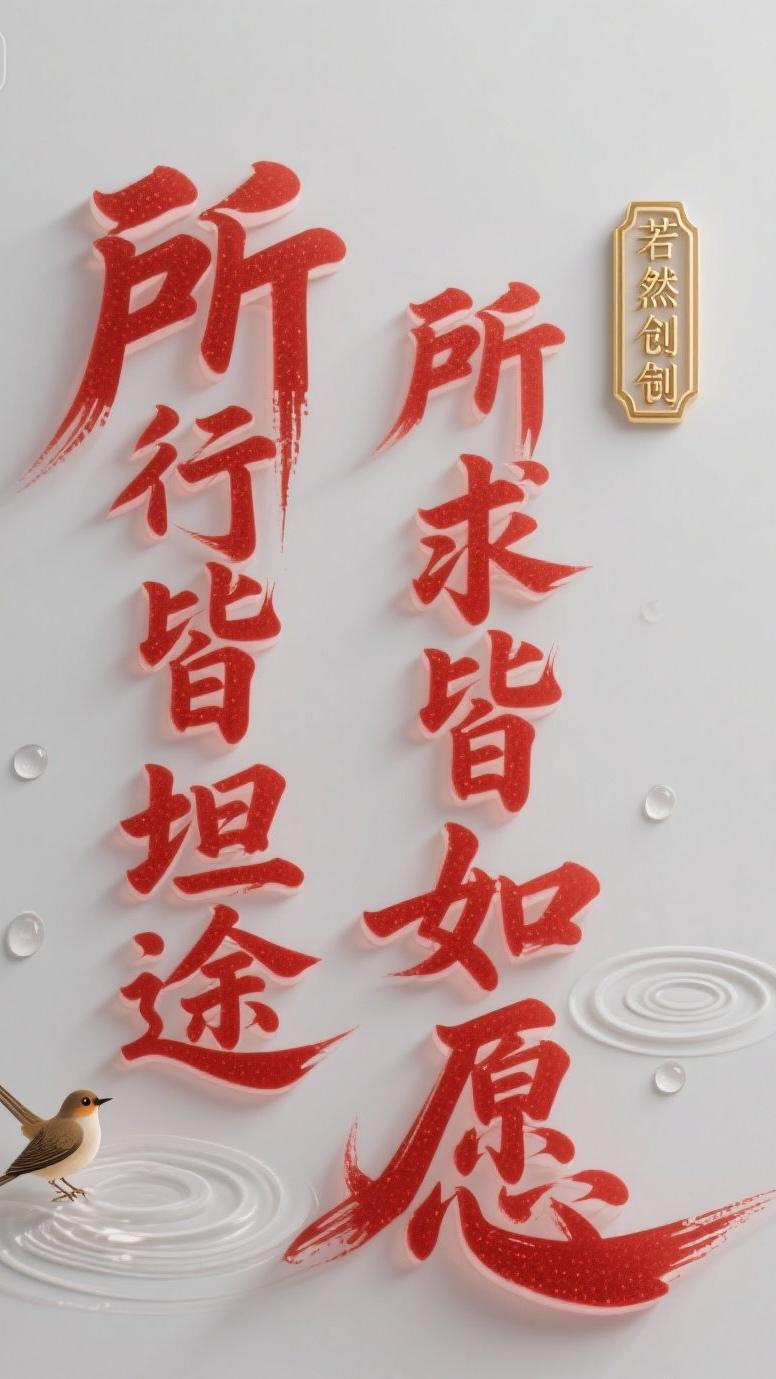 所行皆坦途
所求皆如愿
若然创制